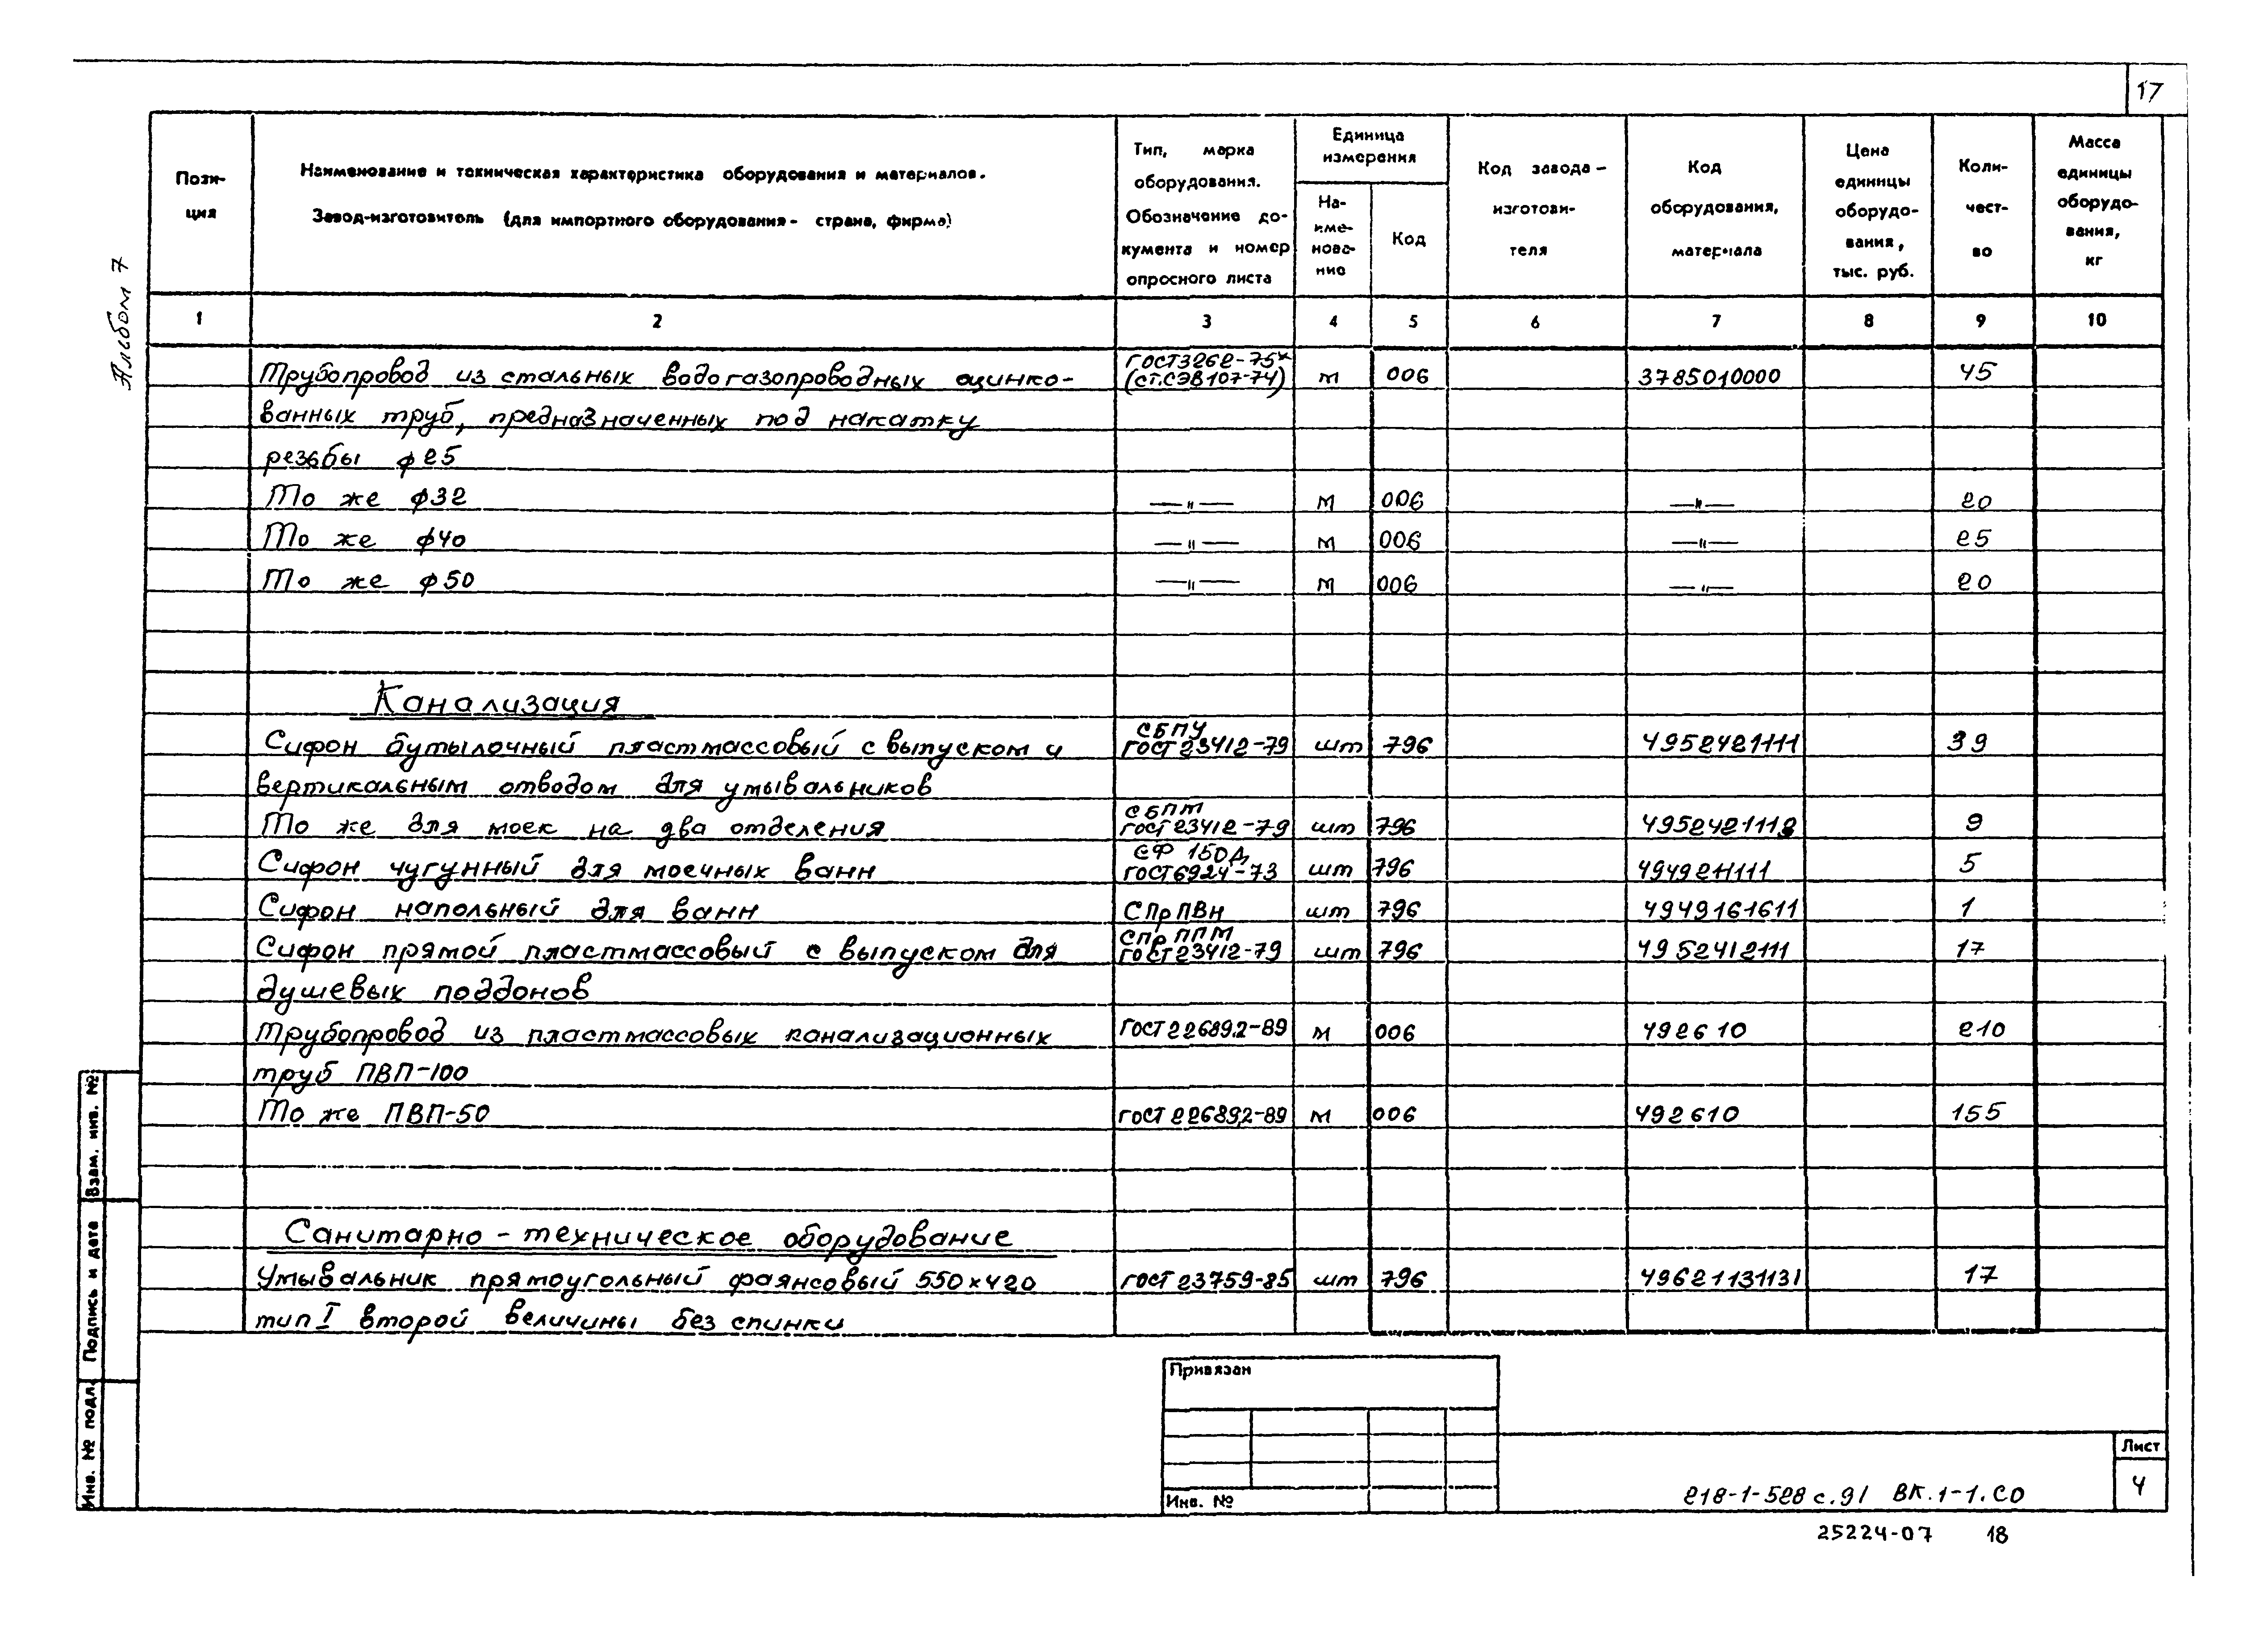 17
Альбом 7
Пози-
ция
Наименование и техническая характеристика оборудования и материалов.
Завод-изготовитель (для импортного оборудования - страна, фирма)
Тип, марка
оборудования.
Обозначение до-
кумента и номер
опросного листа
Единица
измерения
На-
име-
нова-
ние
Код
Код завода-
изготови-
теля
Код
оборудования,
материала
Цена
единицы
оборудо-
вания,
тыс. руб.
Коли-
чест-
во
Масса
единицы
оборудо-
вания,
кг
1 2 3 4 5 6 7 8 9 10
Трубопровод из стальных водогазопроводных оцинко- ГОСТ3262-75* (ст.СЭВ107-74) м 006 3785010000 45
ванных труб, предназначенных под накатку
резьбы ф25
То же ф32 —"— м 006 —"— 20
То же ф40 —"— м 006 —"— 25
То же ф50 —"— м 006 —"— 20
Канализация
Сифон бутылочный пластмассовый с выпуском и СБПУ ГОСТ23412-79 шт 796 4952421111 39
вертикальным отводом для умывальников
То же для моек на два отделения СБПМ ГОСТ23412-79 шт 796 4952421112 9
Сифон чугунный для моечных ванн СФ 150Д ГОСТ6924-73 шт 796 4949211111 5
Сифон напольный для ванн СПрПВн шт 796 4949161611 1
Сифон прямой пластмассовый с выпуском для СПрППМ ГОСТ23412-79 шт 796 4952412111 17
душевых поддонов
Трубопровод из пластмассовых канализационных ГОСТ22689.2-89 м 006 492610 210
труб ПВП-100
То же ПВП-50 ГОСТ22689.2-89 м 006 492610 155
Санитарно-техническое оборудование
Умывальник прямоугольный фаянсовый 550×420 ГОСТ23759-85 шт 796 49621131131 17
тип I второй величины без спинки
Взам. инв. №
Подпись и дата
Инв. № подл.
Привязан
Инв. №
218-1-528 с.91 ВК.1-1.СО
Лист
4
25224-07 18